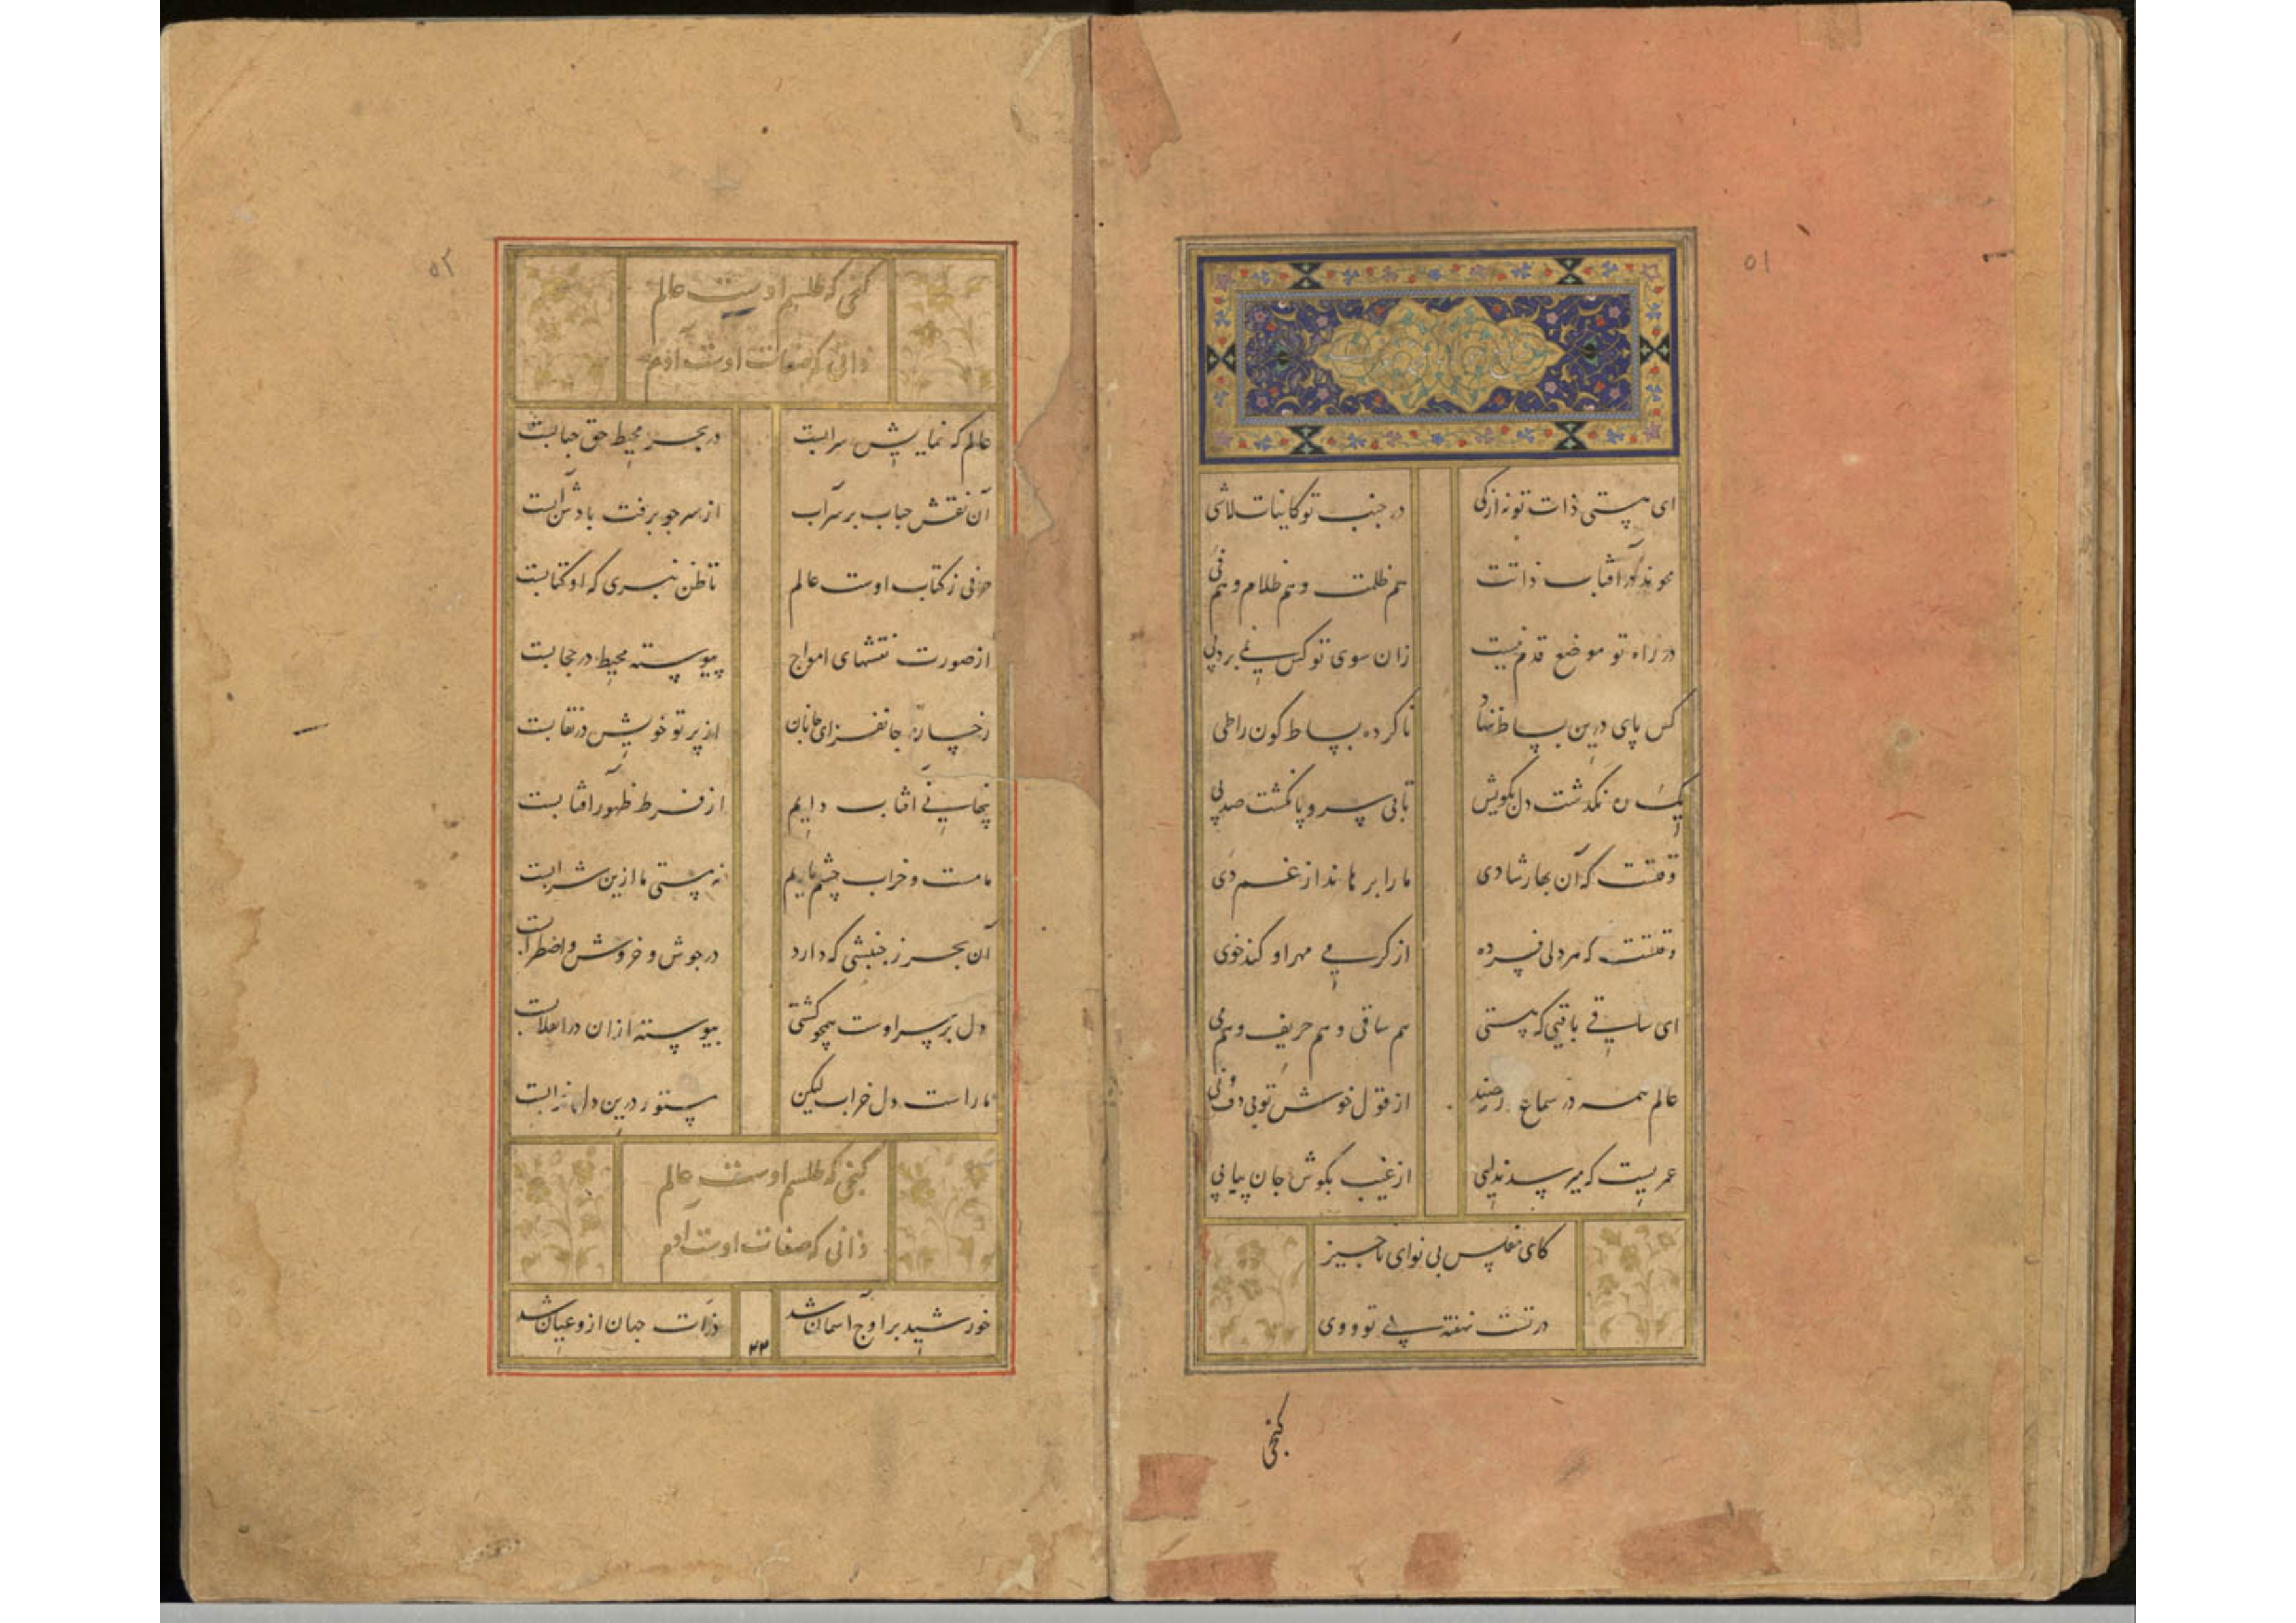 ۵۱
ای هستی ذات تو نه از کی در جنب تو کاینات لاشی
محوند در آفتاب ذاتت هم ظلمت و هم ظلام و هم فی
در راه تو موضع قدم نیست زان سوی تو کس نمی برد پی
کس پای درین بساط ننهاد ناکرده بساط کون را طی
نگذشت دل بکویش تا بی سر و پا نکشت صد پی
وقتست که آن بهار شادی ما را برهاند از غم دی
وقتست که هر دل فسرده از گرمی مهر او کند خوی
ای ساقی باقیی که هستی هم ساقی و هم حریف و هم می
عالم همه در سماع رقصند از قول خوش تویی دف و نی
عمریست که میرسد ندایی از غیب بگوش جان پیاپی
کای مفلس بی نوای ناچیز
در تست نهفته پی تو و وی
کنجی
۵۲
کنجی که طلسم اوست عالم
ذاتی که صفات اوست آدم
عالم که نمایش سرابست در بحر محیط حق حبابست
آن نقش حباب بر سر آب از سر چو برفت باد شد آبست
حرفی ز کتاب اوست عالم تا ظن نبری که او کتابست
از صورت نقشهای امواج پیوسته محیط در حجابست
رخساره جانفزای جانان از پرتو خویش در نقابست
پنهانی آفتاب دایم از فرط ظهور آفتابست
ما مست و خراب چشم یاریم نه مستی ما ازین شرابست
آن بحر ز جنبشی که دارد در جوش و خروش و اضطرابست
دل بر سر اوست همچو کشتی پیوسته از آن در انقلابست
ما راست دل خراب لیکن مستور درین دل خرابست
کنجی که طلسم اوست عالم
ذاتی که صفات اوست آدم
خورشید بر اوج آسمان شد ذرات جهان ازو عیان شد
۲۲